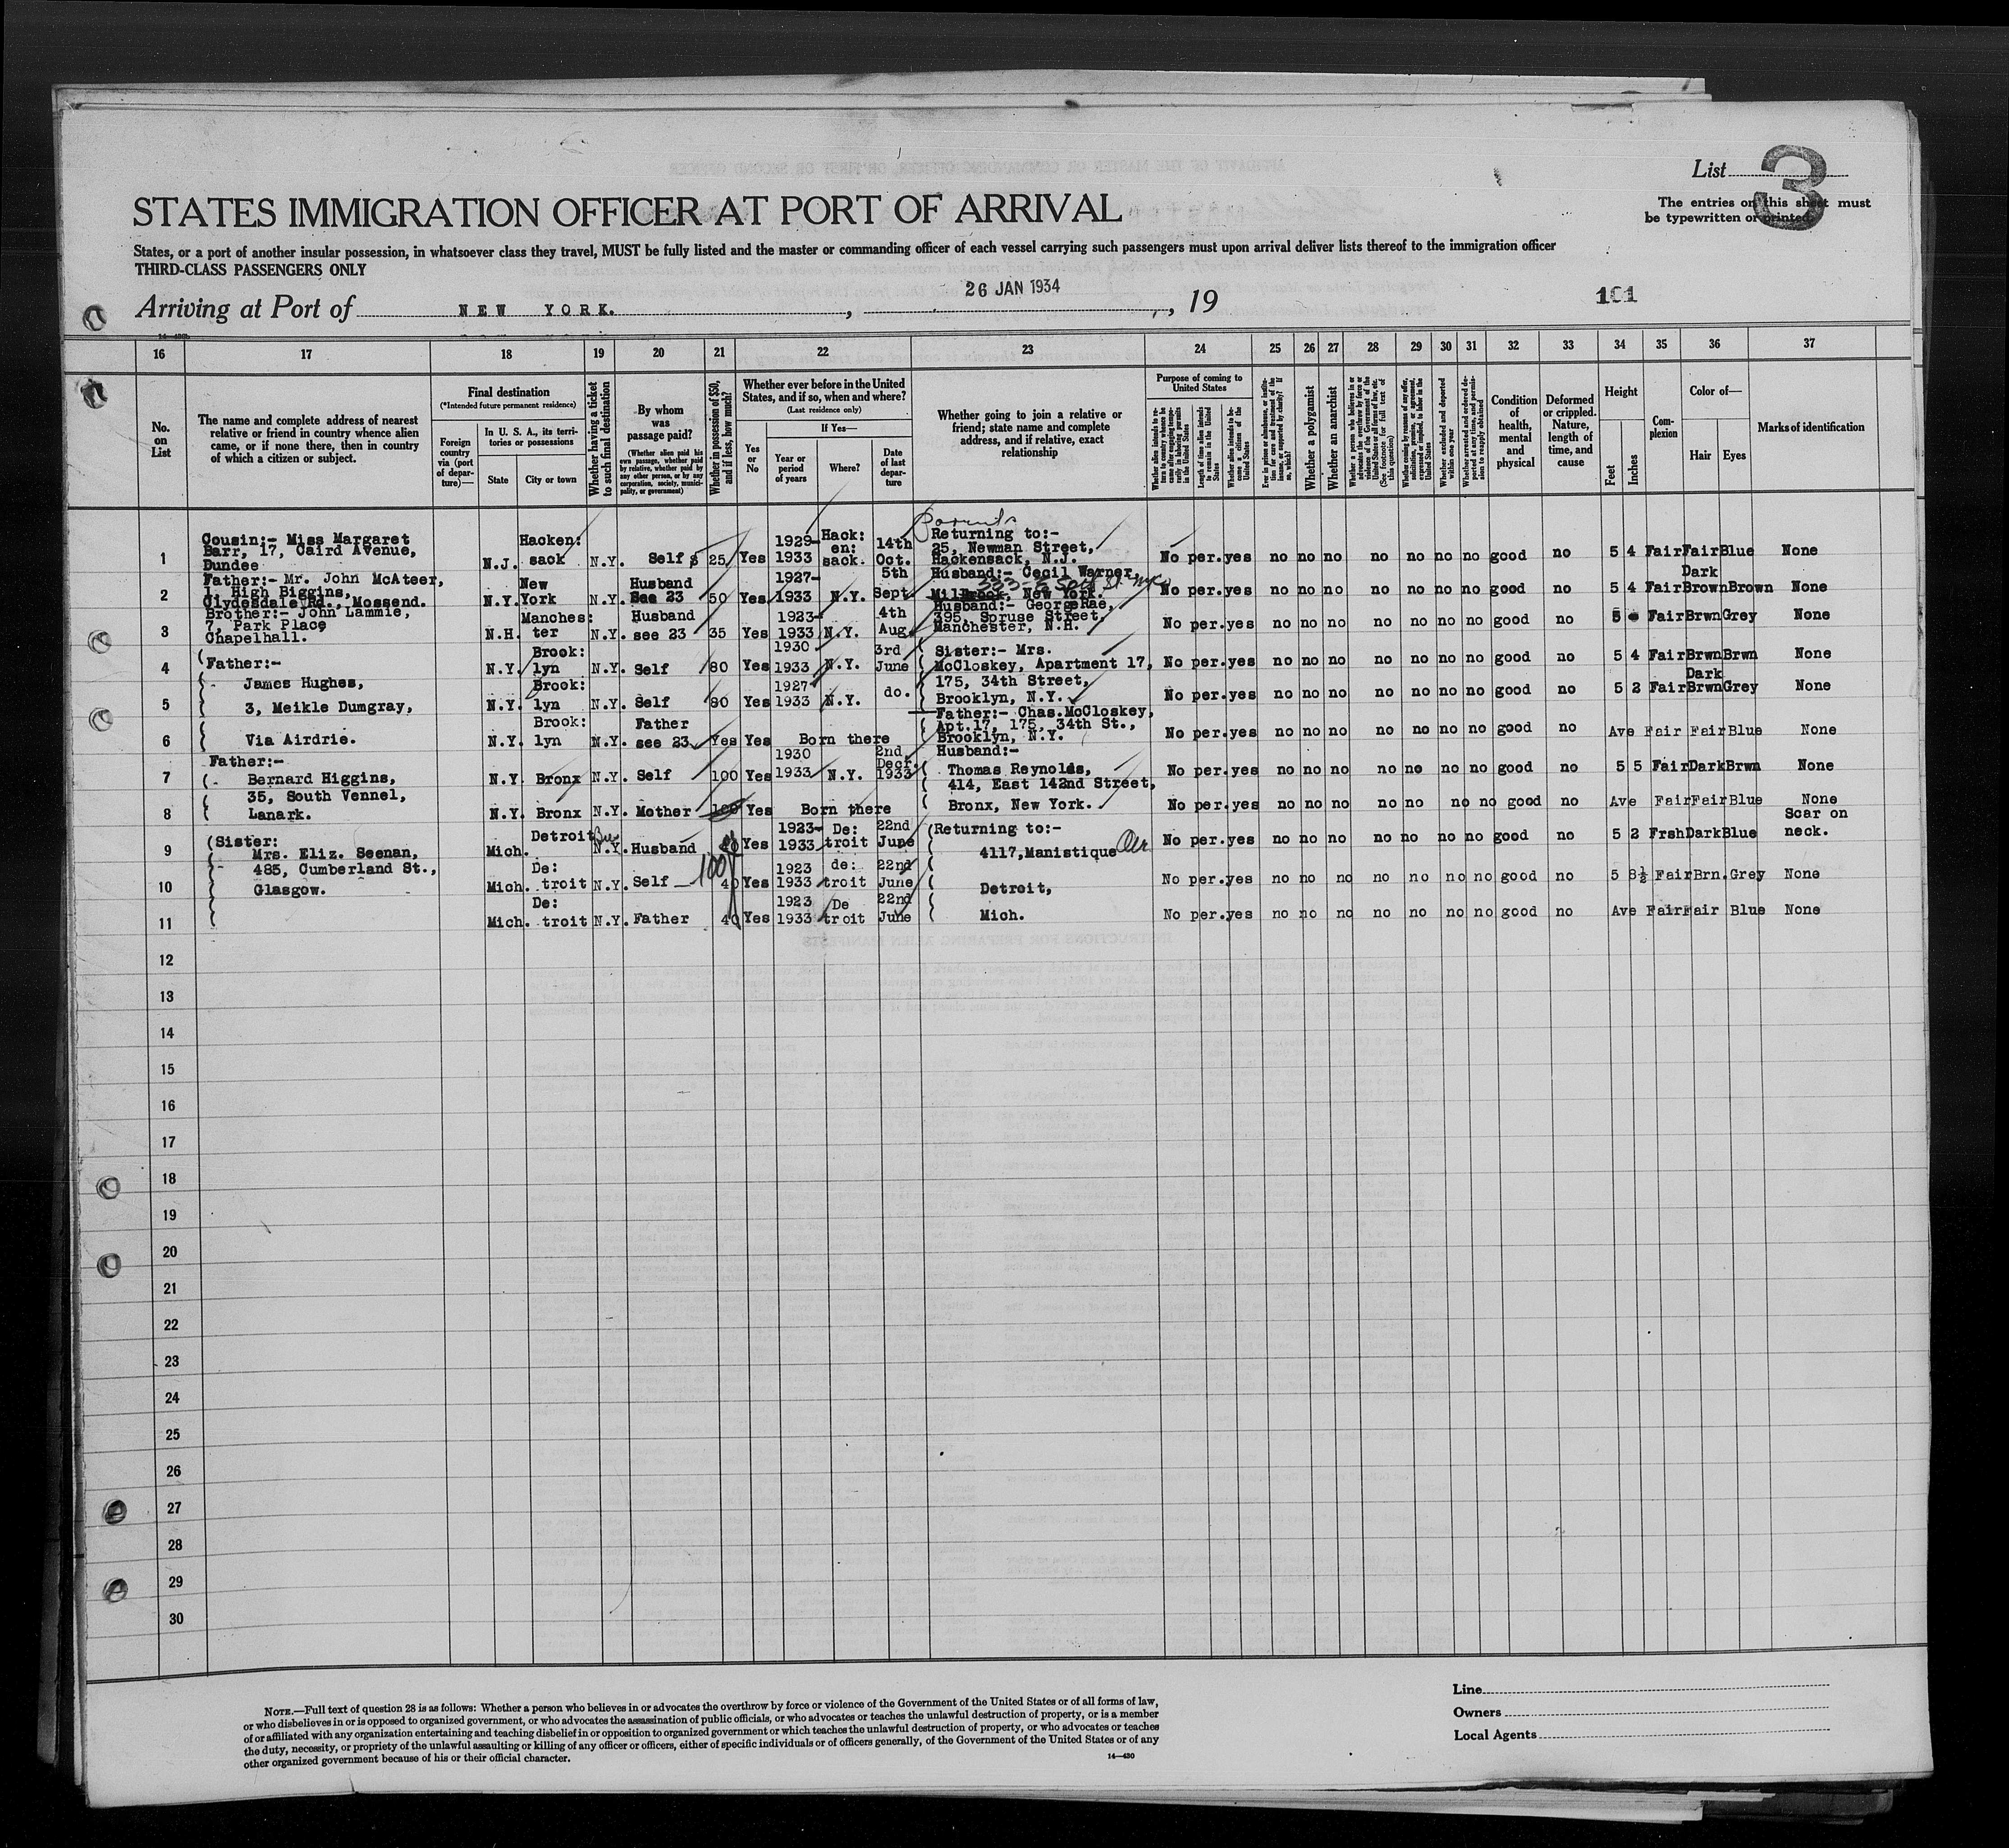 List 3
The entries on this sheet must
be typewritten or printed.
STATES IMMIGRATION OFFICER AT PORT OF ARRIVAL
States, or a port of another insular possession, in whatsoever class they travel, MUST be fully listed and the master or commanding officer of each vessel carrying such passengers must upon arrival deliver lists thereof to the immigration officer
THIRD-CLASS PASSENGERS ONLY
Arriving at Port of NEW YORK. , 26 JAN 1934 , 19
101
16 17 18 19 20 21 22 23 24 25 26 27 28 29 30 31 32 33 34 35 36 37
No. on List
The name and complete address of nearest relative or friend in country whence alien came, or if none there, then in country of which a citizen or subject.
Final destination
(*Intended future permanent residence)
Foreign country via (port of departure)—
In U. S. A., its territories or possessions
State
City or town
Whether having a ticket to such final destination
By whom was passage paid?
(Whether alien paid his own passage, whether paid by relative, whether paid by any other person, or by any corporation, society, municipality, or government)
Whether in possession of $50, and if less, how much?
Whether ever before in the United States, and if so, when and where?
(Last residence only)
Yes or No
If Yes—
Year or period of years
Where?
Date of last departure
Whether going to join a relative or friend; state name and complete address, and if relative, exact relationship
Purpose of coming to United States
Whether alien intends to return to country whence he came after engaging temporarily in laboring pursuits in the United States
Length of time alien intends to remain in the United States
Whether alien intends to become a citizen of the United States
Ever in prison or almshouse, or institution for care and treatment of the insane, or supported by charity? If so, which?
Whether a polygamist
Whether an anarchist
Whether a person who believes in or advocates the overthrow by force or violence of the Government of the United States or all forms of law, etc. (See footnote for full text of this question)
Whether coming by reason of any offer, solicitation, promise, or agreement, expressed or implied, to labor in the United States
Whether excluded and deported within one year
Whether arrested and ordered deported at any time, and permission to reapply obtained
Condition of health, mental and physical
Deformed or crippled. Nature, length of time, and cause
Height
Feet
Inches
Complexion
Color of—
Hair
Eyes
Marks of identification
1 Cousin:- Miss Margaret Barr, 17, Caird Avenue, Dundee N.J. Hacken: sack N.Y. Self $ 25 Yes 1929- 1933 Hack: en: sack. 14th Oct. Parents Returning to:- 25, Newman Street, Hackensack, N.J. No per. yes no no no no no no no good no 5 4 Fair Fair Blue None
2 Father:- Mr. John McAteer, 1, High Biggins, Clydesdale Rd., Mossend. N.Y. New York N.Y. Husband See 23 50 Yes 1927- 1933 N.Y. 5th Sept. Husband:- Cecil Warner, Milbrook, New York. No per. yes no no no no no no no good no 5 4 Fair Dark Brown Brown None
3 Brother:- John Lammie, 7, Park Place Chapelhall. N.H. Manches: ter N.Y. Husband see 23 35 Yes 1923- 1933 N.Y. 4th Aug. Husband:- George Rae, 395, Spruse Street, Manchester, N.H. No per. yes no no no no no no no good no 5 Fair Brwn Grey None
4 Father:- N.Y. Brook: lyn N.Y. Self 80 Yes 1930 1933 N.Y. 3rd June Sister:- Mrs. McCloskey, Apartment 17, No per. yes no no no no no no no good no 5 4 Fair Brwn Brwn None
5 James Hughes, 3, Meikle Dumgray, N.Y. Brook: lyn N.Y. Self 80 Yes 1927 1933 N.Y. do. 175, 34th Street, Brooklyn, N.Y. No per. yes no no no no no no no good no 5 2 Fair Dark Brwn Grey None
6 Via Airdrie. N.Y. Brook: lyn N.Y. Father see 23 Yes Yes Born there Father:- Chas. McCloskey, Apt. 17, 175, 34th St., Brooklyn, N.Y. No per. yes no no no no no no no good no Ave Fair Fair Blue None
7 Father:- Bernard Higgins, N.Y. Bronx N.Y. Self 100 Yes 1930 1933 N.Y. 2nd Decr. 1933 Husband:- Thomas Reynolds, 414, East 142nd Street, No per. yes no no no no no no no good no 5 5 Fair Dark Brwn None
8 35, South Vennel, Lanark. N.Y. Bronx N.Y. Mother 100 Yes Born there Bronx, New York. No per. yes no no no no no no no good no Ave Fair Fair Blue None
9 Sister: Mrs. Eliz. Seenan, Mich. Detroit N.Y. Husband Yes 1923- 1933 De: troit 22nd June Returning to:- 4117, Manistique No per. yes no no no no no no no good no 5 2 Frsh Dark Blue Scar on neck.
10 485, Cumberland St., Glasgow. Mich. De: troit N.Y. Self 100 40 Yes 1923 1933 de: troit 22nd June Detroit, No per. yes no no no no no no no good no 5 8½ Fair Brn. Grey None
11 Mich. De: troit N.Y. Father 40 Yes 1923 1933 De troit 22nd June Mich. No per. yes no no no no no no no good no Ave Fair Fair Blue None
12
13
14
15
16
17
18
19
20
21
22
23
24
25
26
27
28
29
30
NOTE.—Full text of question 28 is as follows: Whether a person who believes in or advocates the overthrow by force or violence of the Government of the United States or of all forms of law,
or who disbelieves in or is opposed to organized government, or who advocates the assassination of public officials, or who advocates or teaches the unlawful destruction of property, or is a member
of or affiliated with any organization entertaining and teaching disbelief in or opposition to organized government or which teaches the unlawful destruction of property, or who advocates or teaches
the duty, necessity, or propriety of the unlawful assaulting or killing of any officer or officers, either of specific individuals or of officers generally, of the Government of the United States or of any
other organized government because of his or their official character.
14—430
Line
Owners
Local Agents